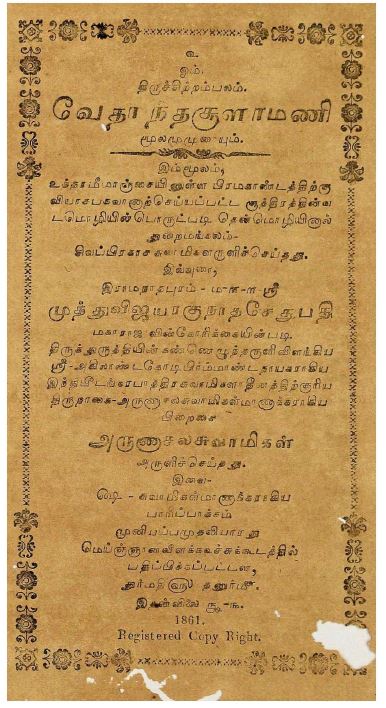 உ
ஓம்.
திருச்சிற்றம்பலம்.
வேதாந்தசூளாமணி
மூலமுமுரையும்.
இம்மூலம்,
உத்தரமீமாஞ்சையிலுள்ள பிரமகாண்டத்திற்கு
வியாசபகவானாற்செய்யப்பட்ட சூத்திரத்தின்வ
டமொழியின்பொருட்படி தென்மொழியினால்
துறைமங்கலம்-
சிவப்பிரகாசசுவாமிகளருளிச்செய்தது.
இவ்வுரை,
இராமநாதபுரம் - ம-ள-ள-ஸ்ரீ
முத்துவிஜயரகுநாதசேதுபதி
மகாராஜ வின்கோரிக்கையின்படி.
திருத்துருத்தியின்கண்ணெழுந்தருளிவிளங்கிய
ஸ்ரீ-அகிலாண்டகோடி பிர்ம்மாண்டநாயகராகிய
இந்திரபீடங்கரபாத்திரசுவாமிகளாதீனத்திற்குரிய
திருநாகை-அருணாசலசுவாமிகள்மாணாக்கராகிய
பிறைசை
அருணாசலசுவாமிகள்
அருளிச்செய்தது.
இவை-
௸ - சுவாமிகள்மாணாக்கராகிய
பாரிப்பாக்கம்
முனியப்பமுதலியாரது
மெய்ஞ்ஞானவிளக்கவச்சுக்கூடத்தில்
பதிப்பிக்கப்பட்டன,
துர்மதி௵ தனுர்௴.
இதன்விலை ரூ-௩.
1861.
Registered Copy Right.